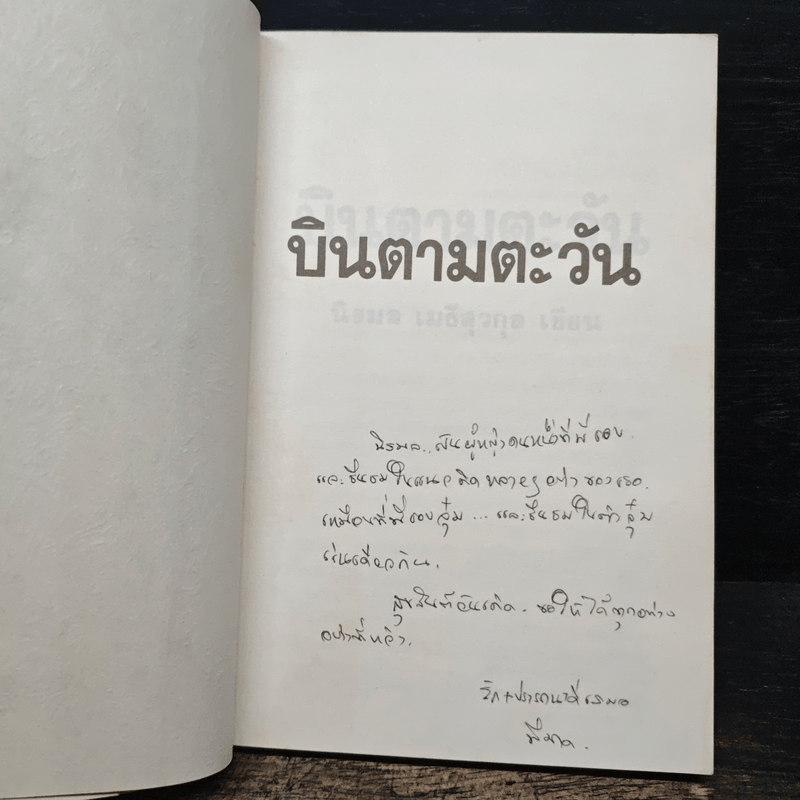 บินตามตะวัน
นิรมล เมธีสุวกุล เขียน
นิรมล.. เป็นผู้หญิงคนหนึ่งที่พี่ชอบ.
และชื่นชมในแนวคิดหลายๆ อย่างของเธอ.
เหมือนที่พี่ชอบจุ๋ม ... และชื่นชมในตัวจุ๋ม
เช่นเดียวกัน.
สุขสันต์วันเกิด. ขอให้ได้ทุกอย่าง
อย่างที่หวัง.
รัก+ปรารถนาดีเสมอ